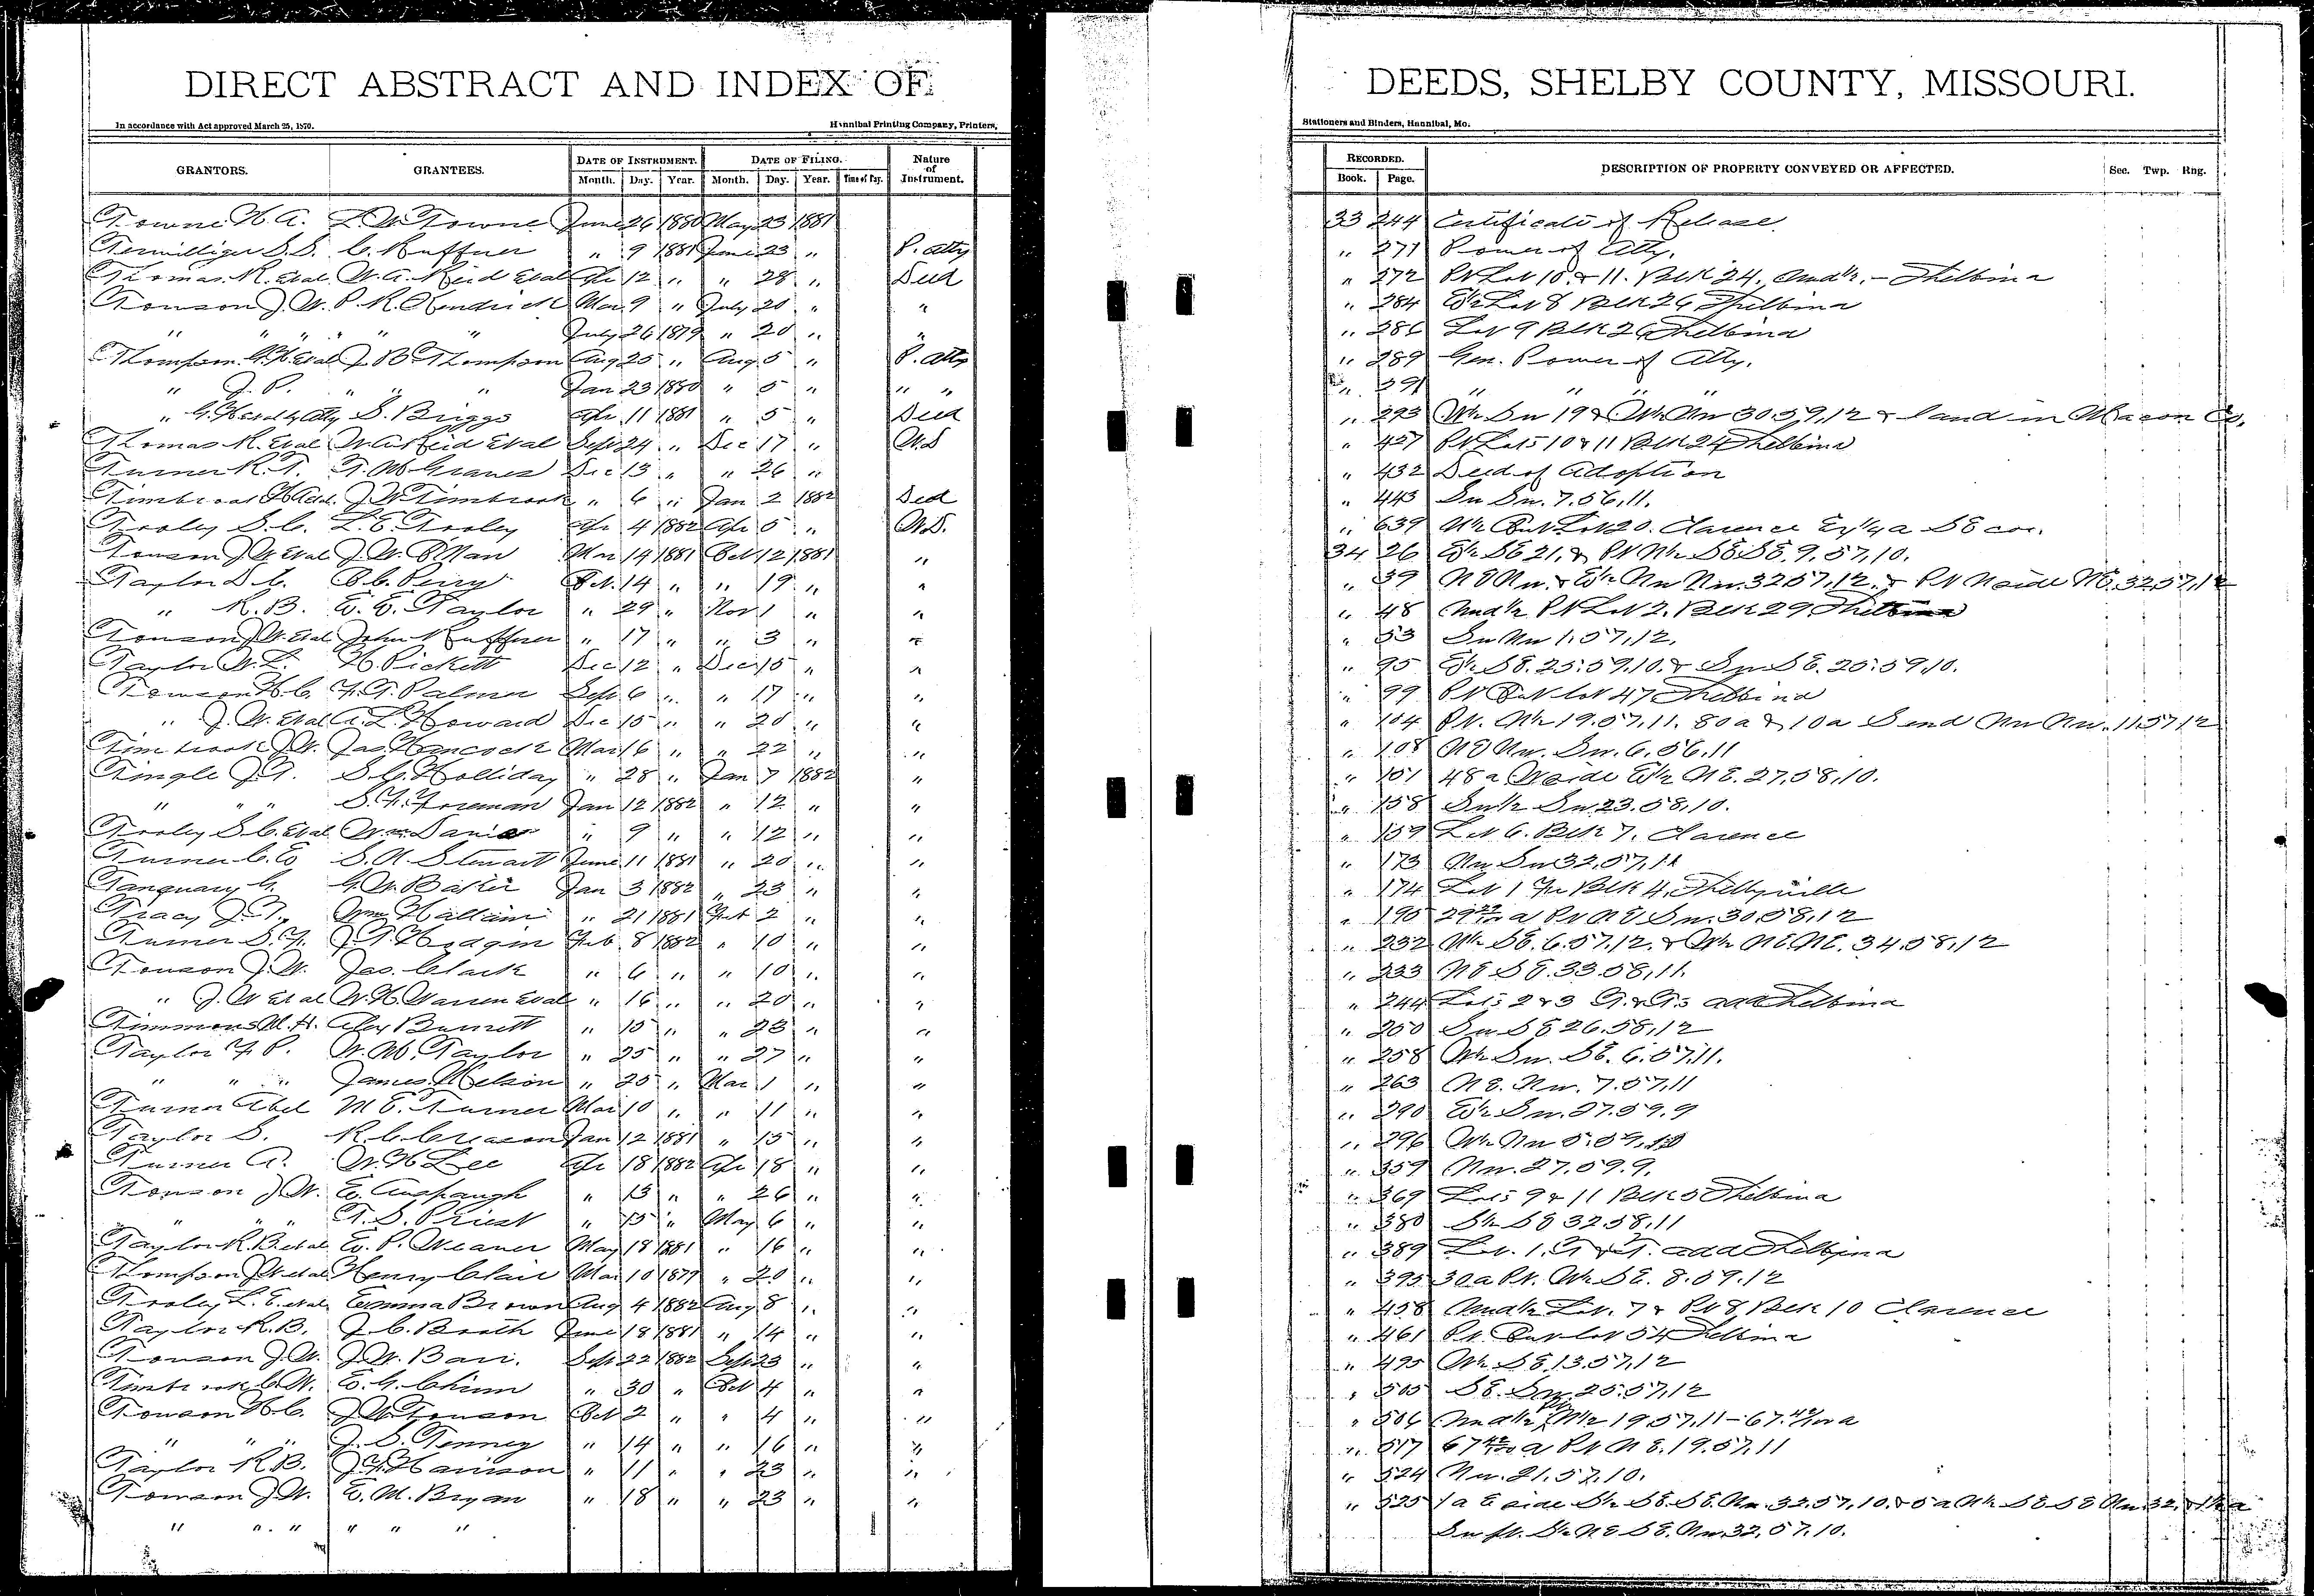 DIRECT ABSTRACT AND INDEX OF
In accordance with Act approved March 25, 1870.
Hannibal Printing Company, Printers,
GRANTORS. GRANTEES. DATE OF INSTRUMENT. DATE OF FILING. Nature of Instrument.
Month. Day. Year. Month. Day. Year. Time of Day.
Towne H. A. L. W. Towne June 26 1880 May 23 1881
Terwilliger S. S. C. Ruffner " 9 1881 June 23 " P. Atty
Thomas R. Etal W. A. Reid Etal Apr 12 " " 28 " Deed
Towson J. W. P. K. Hendrick Mar 9 " July 20 " "
" " " " " July 26 1879 " 20 " "
Thompson G. H. Etal J. B. Thompson Aug 25 " Aug 5 " P. Atty
" J. P. " " " Jan 23 1880 " 5 " " "
" G. H. Etal by Atty S. Briggs Apr 11 1881 " 5 " Deed
Thomas R. Etal W. A. Reid Etal Sept 24 " Dec 17 " W.D
Turner R. T. T. M. Graves Dec 13 " " 26 "
Timbrook J. W. Timbrook " 6 " Jan 2 1882 Ded
Tooley S. C. L. E. Tooley Apr 4 1882 Apr 5 " W.D.
Towson J. W. Etal J. W. Man Mar 14 1881 Oct 12 1881 "
Taylor D. C. B. C. Perry Oct. 14 " " 19 " "
" R. B. E. E. Taylor " 29 " Nov 1 " "
Towson J. W. Etal John Ruffner " 17 " " 3 " "
Taylor W. L. H. Pickett Dec 12 " Dec 15 " "
Towson H. C. F. T. Palmer Sept 6 " " 17 " "
" J. W. Etal A. L. Howard Dec 15 " " 20 " "
Timbrook J. W. Jas. Hancock Mar 16 " " 22 " "
Tingle J. T. S. C. Holliday " 28 " Jan 7 1882 "
" " S. F. Foreman Jan 12 1882 " 12 " "
Tooley S. C. Etal Wm Daniel " 9 " " 12 " "
Turner C. E S. A. Stewart June 11 1881 " 20 " "
Tanquary G. G. W. Baker Jan 3 1882 " 23 " "
Tracy J. T. Wm Hallam " 21 1881 Feb 2 " "
Turner S. F. J. T. Hodgin Feb. 8 1882 " 10 " "
Towson J. W. Jas. Clark " 6 " " 10 " "
" J. W Etal W. H. Warren Etal " 16 " " 20 " "
Timmons M. H. Alex Burnett " 15 " " 23 " "
Taylor F. P. W. M. Taylor " 25 " " 27 " "
" " " James Nelson " 25 " Mar 1 " "
Turner Abel M E. Turner Mar 10 " " 11 " "
Taylor S. R. C. Creason Jan 12 1881 " 15 " "
Turner A. W. H Lee Apr 18 1882 Apr 18 " "
Towson J W. E. Auspaugh " 13 " " 26 " "
" " " T. S. Priest " 15 " May 6 " "
Taylor R. B. etal E. P. Weaver May 18 1881 " 16 " "
Thompson J. W. etal Henry Clair Mar 10 1879 " 20 " "
Tooley L. E. etal Emma Brown Aug 4 1882 Aug 8 " "
Taylor R. B. J. C. Booth June 18 1881 " 14 " "
Towson J. W. J. W. Barr. Sept 22 1882 Sept 23 " "
Timbrook C. W. E. G. Chinn " 30 " Oct 4 " "
Towson H. C. J. W. Towson Oct 2 " " 4 " "
" " " J. S. Tenney " 14 " " 16 " "
Taylor R. B. J. F. Harrison " 11 " " 23 " "
Towson J. W. E. M. Bryan " 18 " " 23 " "
" " " " " "
DEEDS, SHELBY COUNTY, MISSOURI.
Stationers and Binders, Hannibal, Mo.
RECORDED. DESCRIPTION OF PROPERTY CONVEYED OR AFFECTED. Sec. Twp. Rng.
Book. Page.
33 244 Certificate of Release.
" 271 Power of Atty.
" 272 Pt Lot 10 & 11. Blk 24. Und ½. - Shelbina
" 284 E½ Lot 8 Blk 26 Shelbina
" 286 Lot 9 Blk 26 Shelbina
" 289 Gen. Power of Atty.
" 291 " " "
" 293 W½ Sw 19 & W½ Nw 30.59,12 & land in Macon Co.
" 427 Pt Lots 10 & 11 Blk 24 Shelbina
" 432 Deed of Adoption
" 443 Sw Sw. 7.56,11.
" 639 N½ Out Lot 20. Clarence Ex ¼ a S E cor.
34 26 E½ SE 21. & Pt N½ SE SE. 9.57,10.
" 39 NE Nw. & E½ Nw Nw. 32 57,12. & Pt N side NE. 32.57,12
" 48 Und ½ Pt Lot 2. Blk 29 Shelbina
" 53 Sw Nw 1.57,12.
" 95 E½ SE. 25.59.10. & Sw SE. 25.59.10.
" 99 Pt Out lot 47 Shelbina
" 104 Pt. N½ 19.57.11. 80 a & 10 a S end Nw Nw. 11.57 12
" 108 NE Nw. Sw. 6.56.11
" 151 48 a W side E½ NE. 27.58,10.
" 158 Sw ½ Sw 23.58,10.
" 159 Lot 6. Blk 7. Clarence
" 173 Nw Sw 32.57,11
" 174 Lot 1 Fr Blk 4. Shelbyville
" 195 29 a Pt NE Sw. 30 58,12
" 232 N½ SE. 6.57,12. & W½ NE. NE. 34.58,12
" 233 NE SE. 33.58,11.
" 244 Lots 2 & 3 T. & T.s add Shelbina
" 250 Sw SE 26.58,12
" 258 W½ Sw. SE. 6.57,11.
" 263 NE. Nw. 7.57,11
" 290 E½ Sw. 27.59.9
" 296 W½ Nw 5.59,10
" 359 Nw. 27.59.9.
" 369 Lots 9 & 11 Blk 5 Shelbina
" 380 S½ SE 32 58,11
" 389 Lot. 1. T & T. add Shelbina
" 395 30 a Pt. W½ SE. 8.59.12
" 458 Und ½ Lot. 7 & Pt 8 Blk 10 Clarence
" 461 Pt. Out lot 54 Shelbina
" 495 W½ SE. 13.57,12
" 505 SE. Sw. 25.57,12
" 506 Und ½ Pt N½ 19.57,11 - 67.42/100 a
" 517 67 42/100 a Pt NE. 19.57.11
" 524 Nw. 21.57.10.
" 525 1 a E side S½ SE. SE. Nw. 32.57,10. & 5 a N½ SE SE Nw. 32. & 1½ a
Sw pt. S½ NE SE. Nw. 32,57,10.